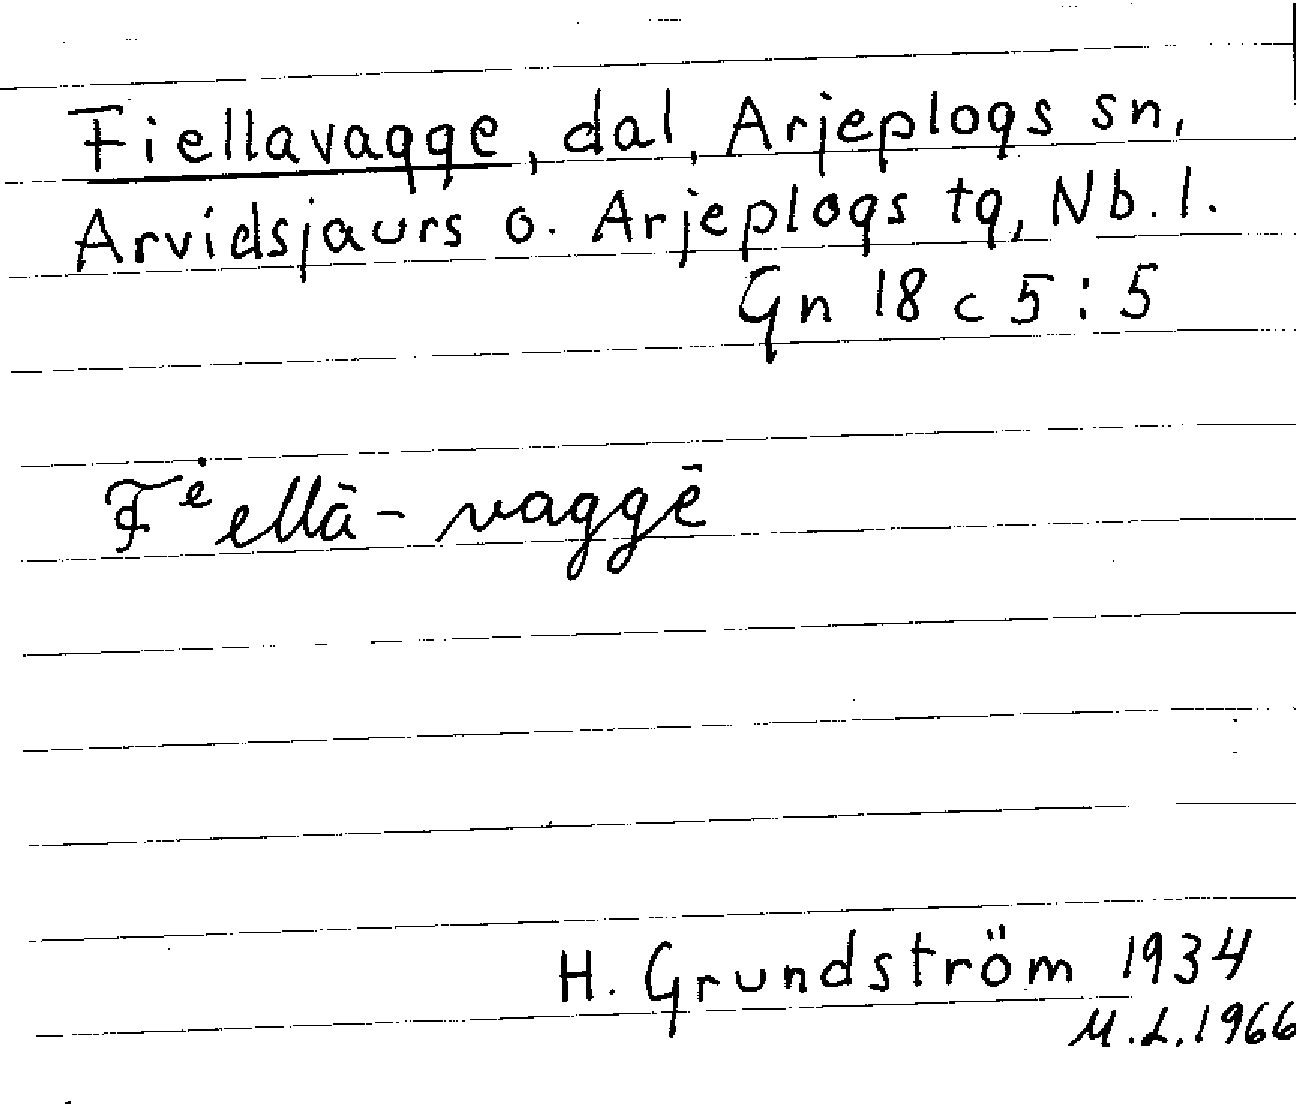 Fiellavagge, dal, Arjeplogs sn,
Arvidsjaurs o. Arjeplogs tg, Nb. l.
Gn 18 c 5 : 5
Fᵉ̇ellā-vaggē
H. Grundström 1934
M.L. 1966